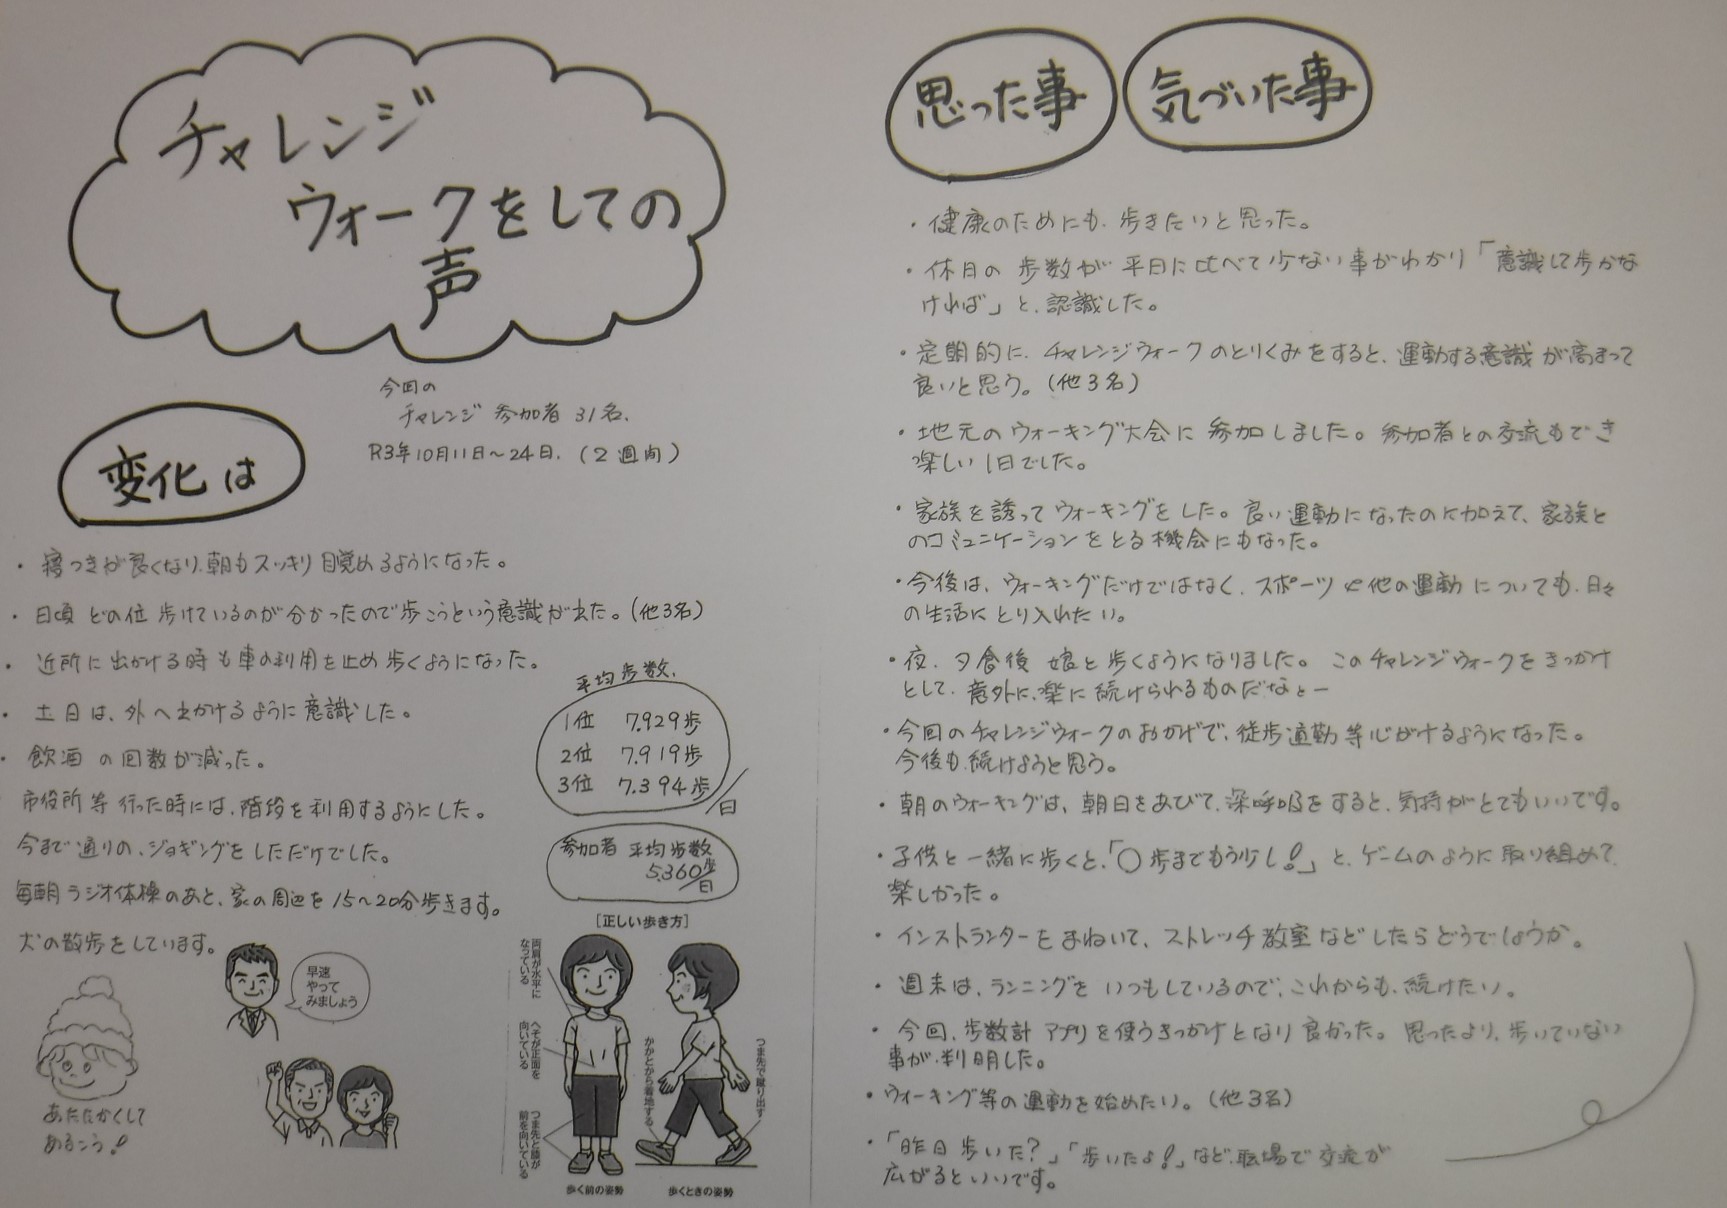 チャレンジ
ウォークをしての
声
今回の
チャレンジ 参加者 31名.
R3年10月11日～24日.（2週間）
変化は
・寝つきが良くなり、朝もスッキリ目覚めるようになった。
・日頃 どの位 歩けているのが分かったので歩こうという意識が出た。(他3名)
・近所に出かける時も車の利用を止め歩くようになった。
・土日は、外へ出かけるように意識した。
・飲酒の回数が減った。
市役所等 行った時には、階段を利用するようにした。
今まで通りの、ジョギングをしただけでした。
毎朝ラジオ体操のあと、家の周辺を15～20分歩きます。
犬の散歩をしています。
平均歩数.
1位 7.929歩
2位 7.919歩
3位 7.394歩
/日
参加者 平均歩数
5.360歩/日
早速
やって
みましょう
あたたかくして
あるこう!
[正しい歩き方]
両肩が水平に
なっている
へそが正面を
向いている
つま先と膝が
前を向いている
かかとから着地する
つま先で蹴り出す
歩く前の姿勢
歩くときの姿勢
思った事
気づいた事
・健康のためにも、歩きたいと思った。
・休日の 歩数が 平日に比べて少ない事がわかり「意識して歩かな
ければ」と、認識した。
・定期的に、チャレンジウォークのとりくみをすると、運動する意識が高まって
良いと思う。(他3名)
・地元のウォーキング大会に参加しました。参加者との交流もでき
楽しい1日でした。
・家族を誘ってウォーキングをした。良い運動になったのに加えて、家族と
のコミュニケーションをとる機会にもなった。
・今後は、ウォーキングだけではなく、スポーツや他の運動についても、日々
の生活にとり入れたい。
・夜、夕食後 娘と歩くようになりました。このチャレンジウォークをきっかけ
として、意外に、楽に続けられるものだなとー
・今回のチャレンジウォークのおかげで、徒歩通勤等心がけるようになった。
今後も、続けようと思う。
・朝のウォーキングは、朝日をあびて、深呼吸をすると、気持がとてもいいです。
・子供と一緒に歩くと、「〇歩までもう少し!」と、ゲームのように取り組めて、
楽しかった。
・インストランターをまねいて、ストレッチ教室などしたらどうでしょうか。
・週末は、ランニングをいつもしているので、これからも、続けたい。
・今回、歩数計アプリを使うきっかけとなり良かった。思ったより、歩いていない
事が、判明した。
・ウォーキング等の運動を始めたい。(他3名)
・「昨日歩いた?」「歩いたよ!」など、職場で交流が
広がるといいです。